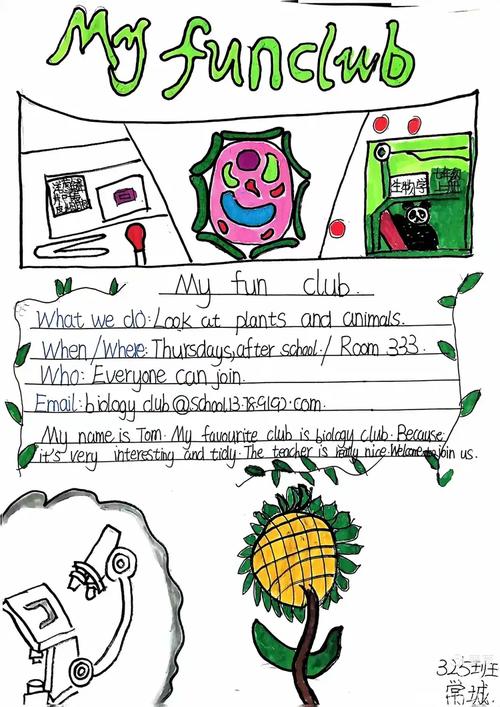 My fun club
生物学
My fun club.
What we do: Look at plants and animals.
When/Where: Thursdays, after school./ Room 333.
Who: Everyone can join.
My name is Tom. My favourite club is biology club. Because
it's very interesting and tidy. The teacher is really nice. Welcome to join us.
325班
常城